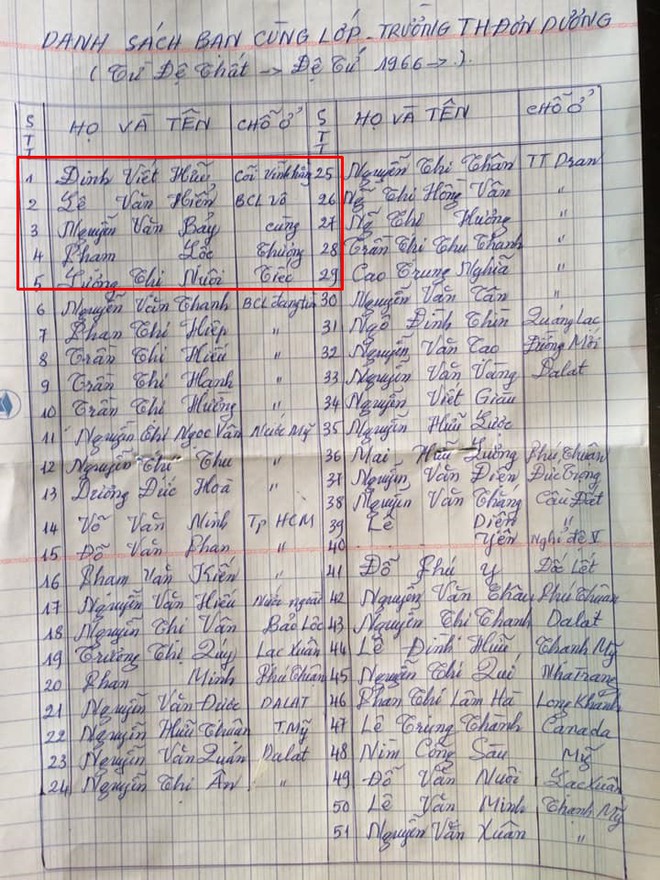 DANH SÁCH BAN CÙNG LỚP - TRƯỜNG TH ĐƠN DƯƠNG
(Từ Đệ Thất → Đệ Tứ 1966 → ).
STT HỌ VÀ TÊN CHỖ Ở STT HỌ VÀ TÊN CHỖ Ở
1 Đinh Viết Hữu Cõi Vĩnh hằng 25 Nguyễn Thị Thân TT Dran
2 Lê Văn Hiển BCL Vô 26 Ng Thị Hồng Vân "
3 Nguyễn Văn Bảy cùng 27 Ng Thị Hương "
4 Phạm Lốc Thương 28 Trần Thị Thu Thanh "
5 Lương Thị Nuôi Tiếc 29 Cao Trung Nghĩa "
6 Nguyễn Văn Thanh BCL 30 Nguyễn Văn Tân "
7 Phan Thị Hiệp " 31 Ngô Đình Thìn Quảng Lạc
8 Trần Thị Hiếu " 32 Nguyễn Văn Tao Đường Mới
9 Trần Thị Hạnh " 33 Nguyễn Văn Vàng Dalat
10 Trần Thị Hương " 34 Nguyễn Viết Giàu
11 Nguyễn Thị Ngọc Vân Nước Mỹ 35 Nguyễn Hữu Lược
12 Nguyễn Thị Thu " 36 Mai Hữu Lương Phú Thuân
13 Dương Đức Hoà " 37 Nguyễn Văn Diên Đức Trọng
14 Võ Văn Ninh Tp HCM 38 Nguyễn Văn Thắng Cầu Đất
15 Đỗ Văn Phan " 39 Lê Diên "
40 Yên Nghỉ đề V
16 Phạm Văn Kiến " 41 Đỗ Phú Y Dốc Lết
17 Nguyễn Văn Hiếu Nước ngoài 42 Nguyễn Văn Châu Phú Thuân
18 Nguyễn Thị Vân Bảo Lộc 43 Nguyễn Thị Thanh Dalat
19 Trương Thị Quy Lạc Xuân 44 Lê Đình Hữu Thạnh Mỹ
20 Phan Minh Phú Thuân 45 Nguyễn Thị Quí Nha Trang
21 Nguyễn Văn Được DALAT 46 Phan Thị Lâm Hà Long Khánh
22 Nguyễn Hữu Thuân T.Mỹ 47 Lê Trung Thành Canada
23 Nguyễn Văn Quán Dalat 48 Nìm Công Sáu Mỹ
24 Nguyễn Thị Ân " 49 Đỗ Văn Nuôi Lạc Xuân
50 Lê Văn Minh Thạnh Mỹ
51 Nguyễn Văn Xuân "